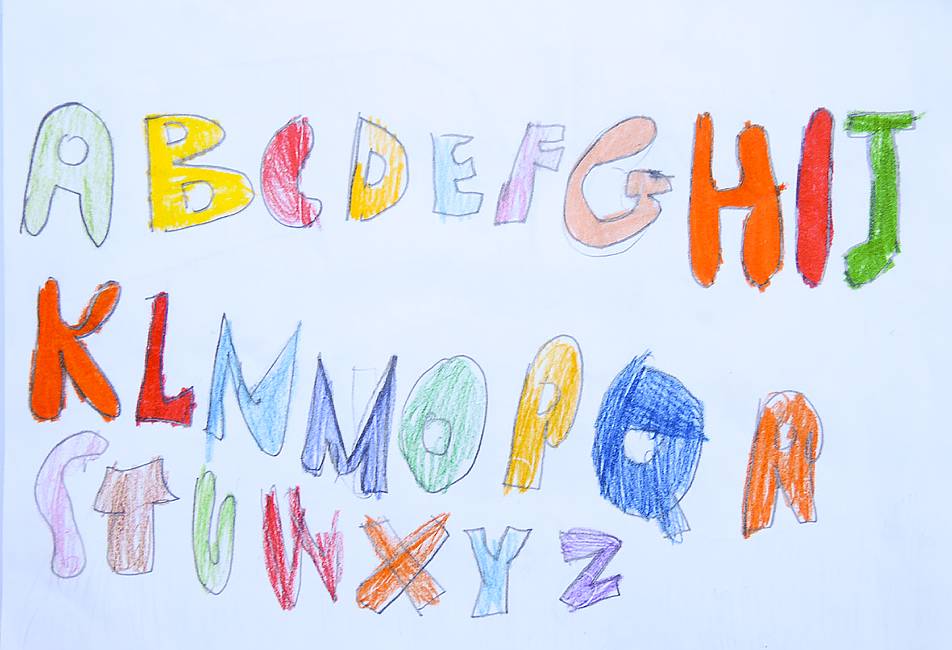 ABCDEFGHIJ
KLNMOPQR
STUWXYZ